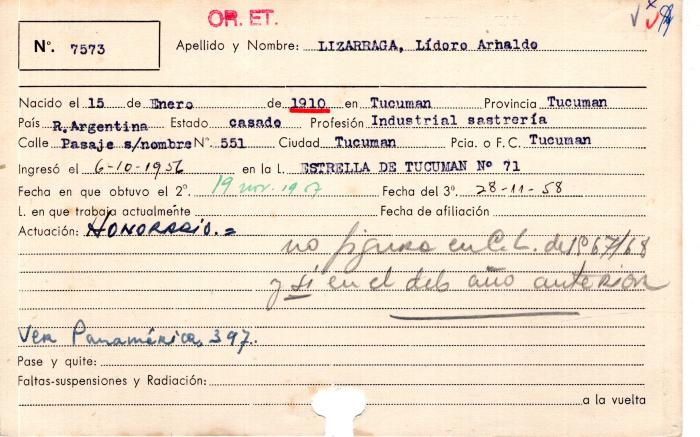 OR. ET.
Nº. 7573
Apellido y Nombre: LIZARRAGA, Lídoro Arhaldo
Nacido el 15 de Enero de 1910 en Tucuman Provincia Tucuman
País R.Argentina Estado casado Profesión Industrial sastrería
Calle Pasaje s/nombre Nº 551 Ciudad Tucuman Pcia. o F.C. Tucuman
Ingresó el 6-10-1956 en la L. ESTRELLA DE TUCUMAN Nº 71
Fecha en que obtuvo el 2º. 19 nov. 1957 Fecha del 3º. 28-11-58
L. en que trabaja actualmente Fecha de afiliación
Actuación: HONORARIO.=
no figura en C.L. de 1967/68
y sí en el del año anterior
Ver Panamérica, 397.
Pase y quite:
Faltas-suspensiones y Radiación:
a la vuelta